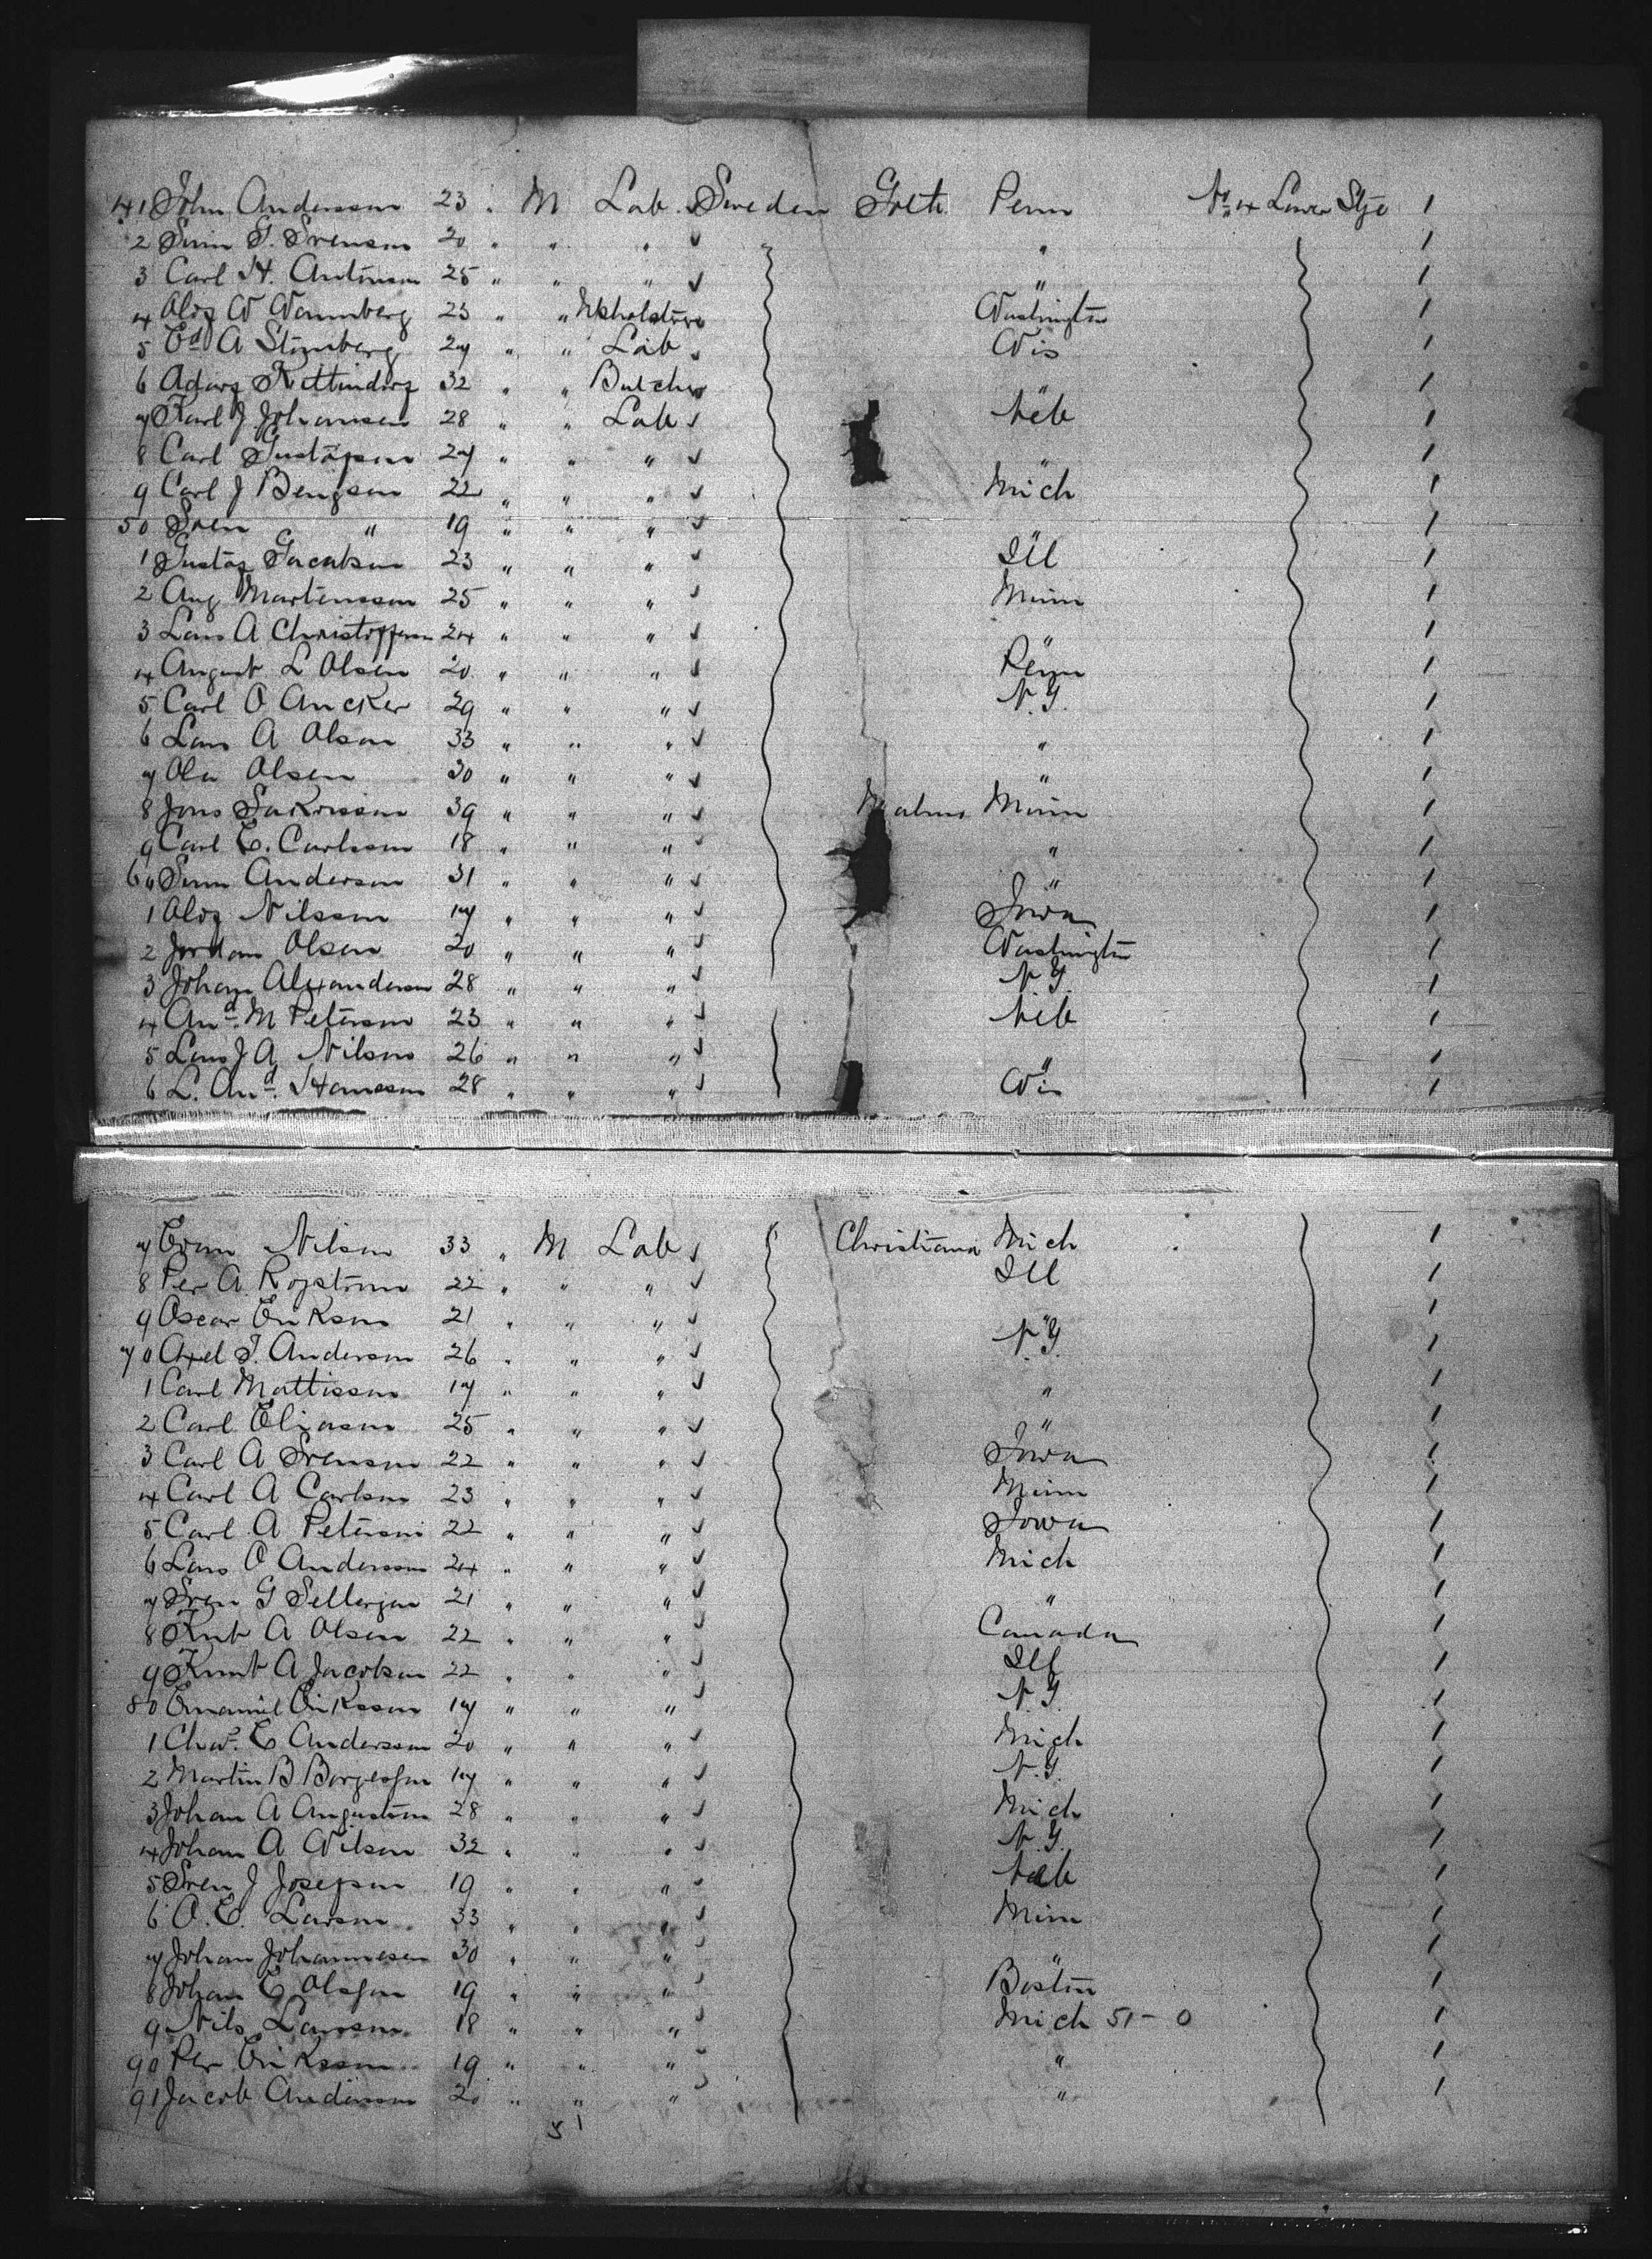 41 John Andersson 23 . M Lab. Sweden Goth Penn No 4 Lower Stge 1
2 Svenson 20 " " " "  1
3 Carl H. 25 " " " " 1
4 23 " " Washington 1
5 Ed A 27 " " Lab Wis 1
6 32 " " Butcher " 1
7 Karl J. Johansen 28 " " Lab Neb 1
8 Carl Gustafson 27 " " " " 1
9 Carl J Bengson 22 " " " Mich 1
50 Sven " 19 " " " " 1
1 Gustaf Jacobson 23 " " " Ill 1
2 Aug Martensson 25 " " " Minn 1
3 Lars A Christofferson 24 " " " " 1
4 August L Olsen 20 " " " Penn 1
5 Carl O Ancker 29 " " " N.Y. 1
6 Lars A Olson 33 " " " " 1
7 Ola Olsen 30 " " " " 1
8 Jons 39 " " " Malmo Minn 1
9 Carl E. Carlsson 18 " " " " 1
60 Anderson 31 " " " " 1
1 Nilsson 17 " " " Iowa 1
2 Olsen 20 " " " Washington 1
3 Johan Alexanderson 28 " " " N.Y. 1
4 And. M Peterson 23 " " " Neb 1
5 Lars J A Nilson 26 " " " " 1
6 L. And. Hansson 28 " " " Wis 1
7 Nilson 33 " M Lab Christiania Mich 1
8 Per A 22 " " " Ill 1
9 Oscar Erikson 21 " " " " 1
70 Axel T. Anderson 26 " " " N.Y. 1
1 Carl Mattisson 17 " " " " 1
2 Carl Eliason 25 " " " " 1
3 Carl A Svenson 22 " " " Iowa 1
4 Carl A Carlson 23 " " " Minn 1
5 Carl A Peterson 22 " " " Iowa 1
6 Lars O Andersson 24 " " " Mich 1
7 Sven G 21 " " " " 1
8 Knut A Olsen 22 " " " Canada 1
9 Knut A Jacobson 22 " " " Ill 1
80 Emanuel Eriksson 17 " " " N.Y. 1
1 Chas. E Andersson 20 " " " Mich 1
2 Martin B Borgesson 17 " " " N.Y. 1
3 Johan A 28 " " " Mich 1
4 Johan A 32 " " " N.Y. 1
5 Sven J Josefson 19 " " " Neb 1
6 O. E. Larson 33 " " " Minn 1
7 Johan Johannesen 30 " " " " 1
8 Johan E Olsson 19 " " " Boston 1
9 Nils Larsson 18 " " " Mich 51 - 0 1
90 Per Eriksson 19 " " " " 1
91 Jacob Andersson 20 " " " " 1
51